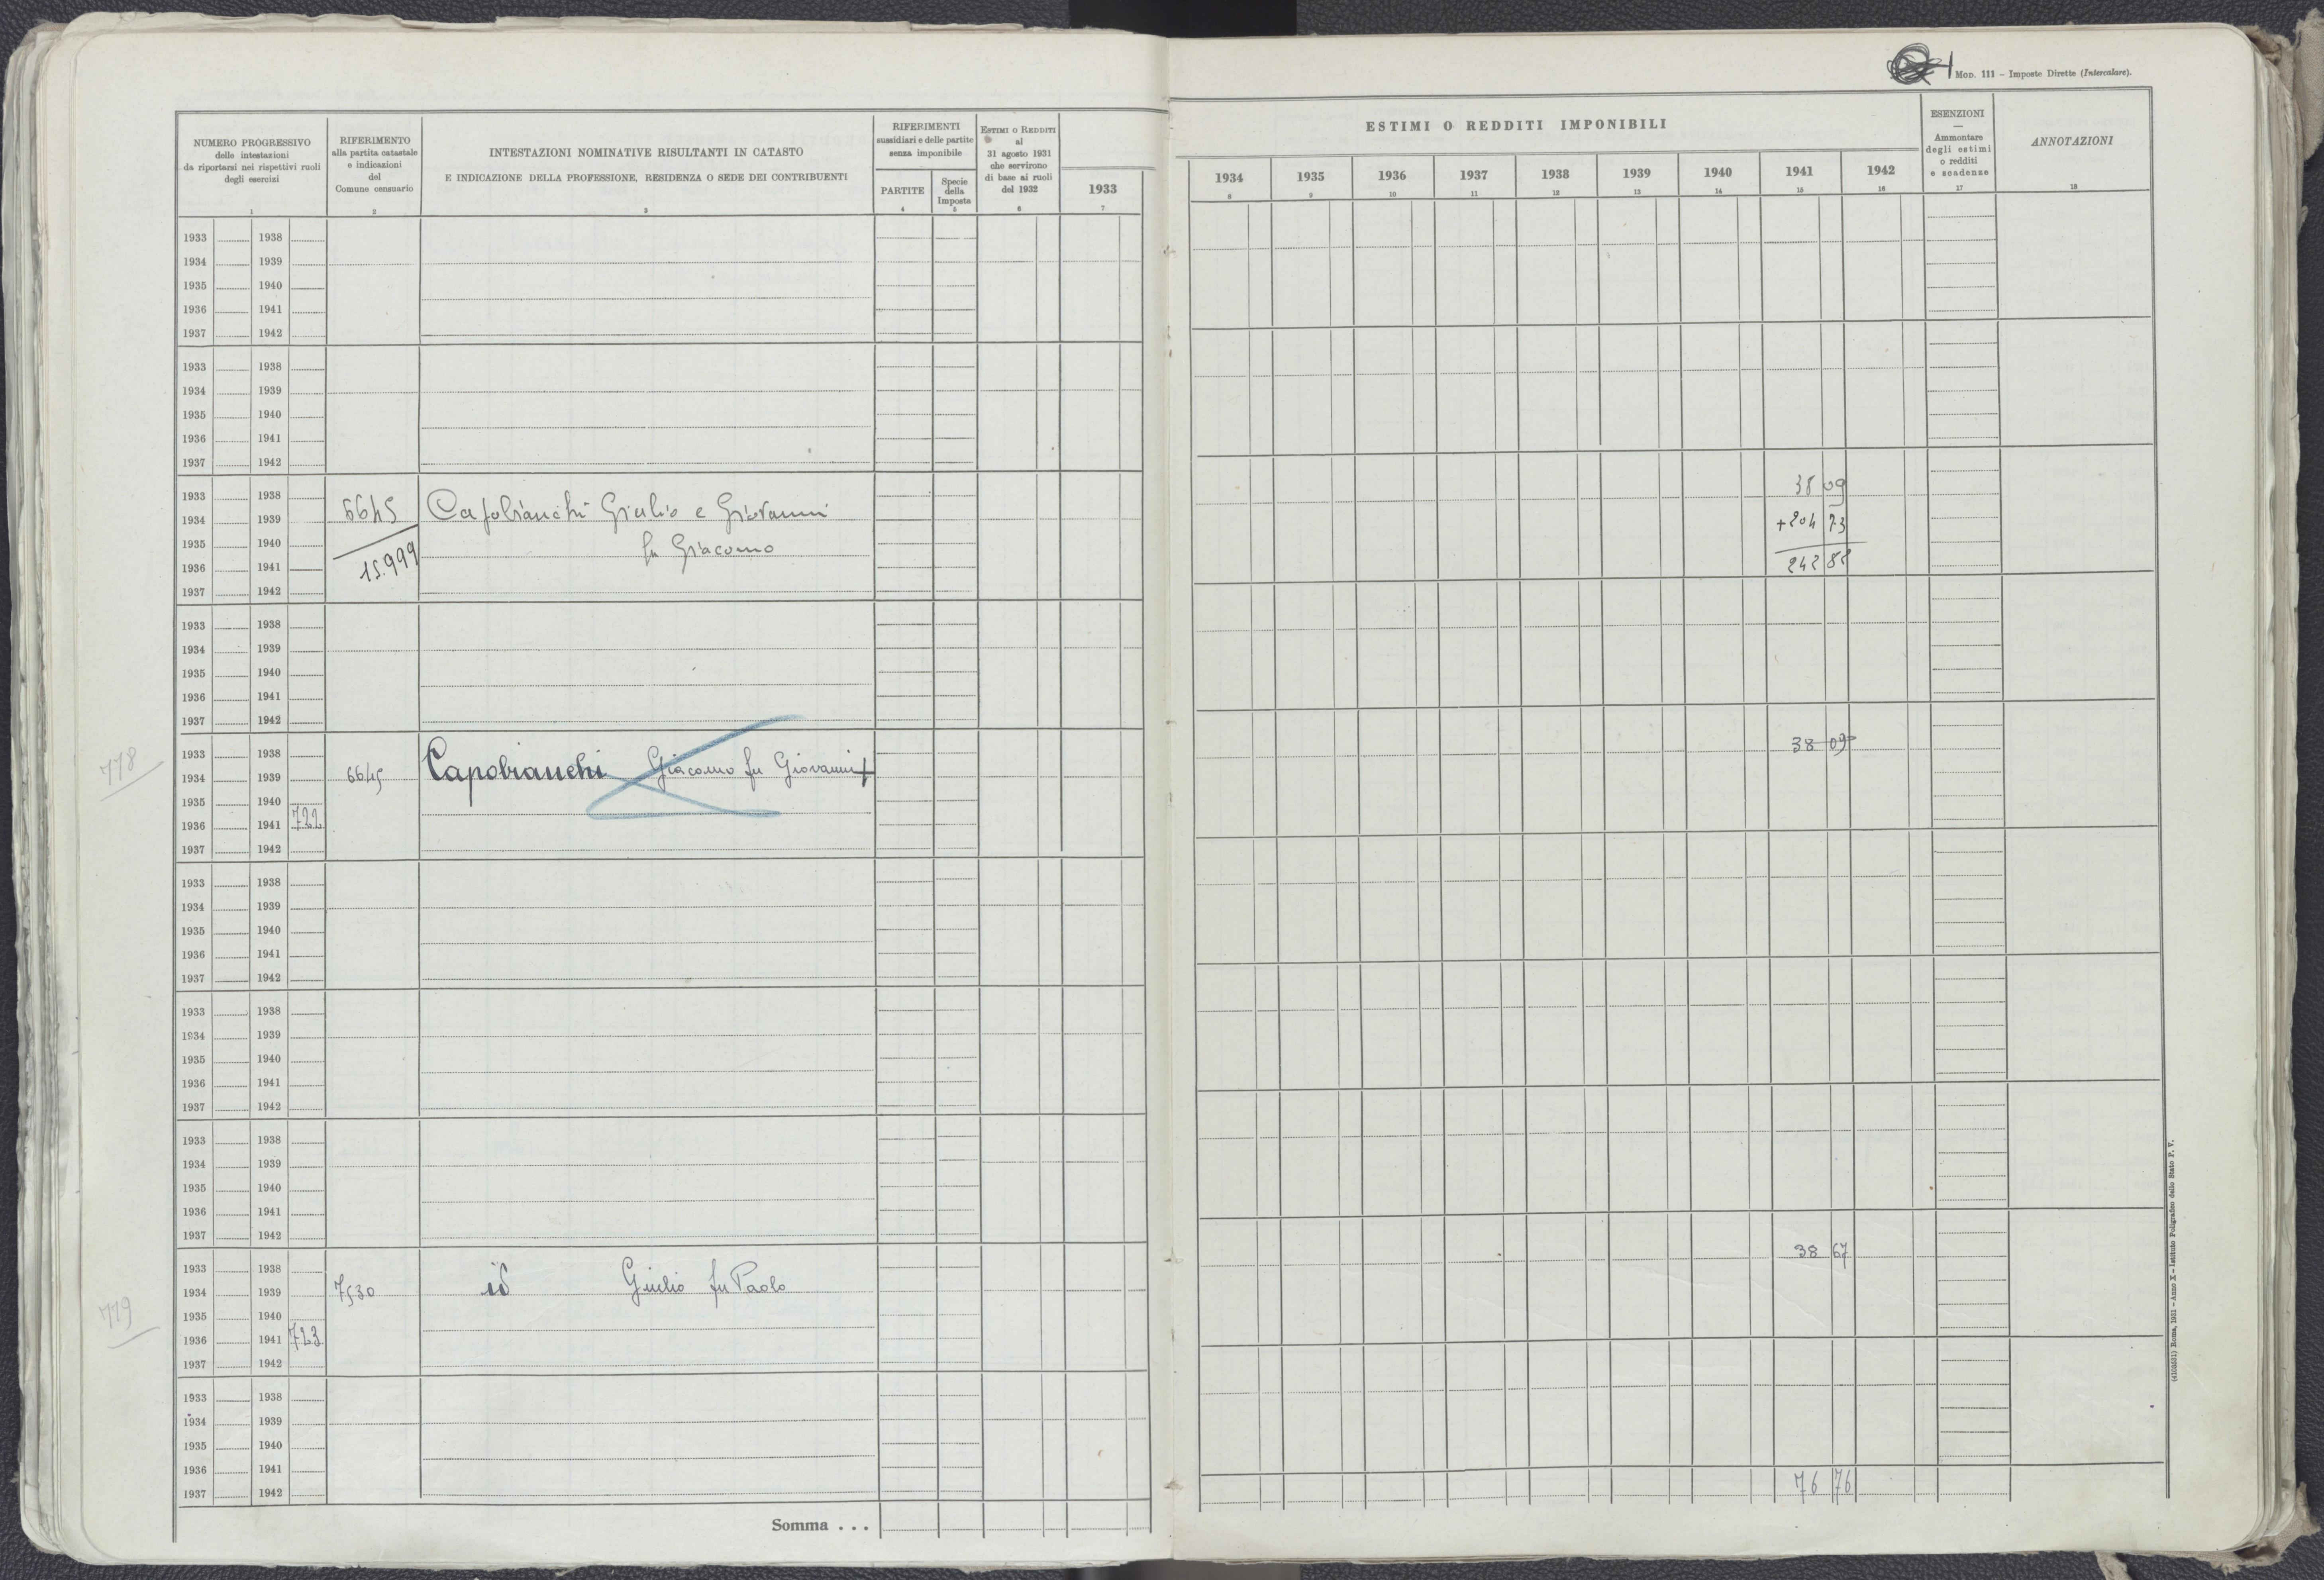 MOD. 111 – Imposte Dirette (Intercalare).
NUMERO PROGRESSIVO
delle intestazioni
da riportarsi nei rispettivi ruoli
degli esercizi
1
RIFERIMENTO
alla partita catastale
e indicazioni
del
Comune censuario
2
INTESTAZIONI NOMINATIVE RISULTANTI IN CATASTO
E INDICAZIONE DELLA PROFESSIONE, RESIDENZA O SEDE DEI CONTRIBUENTI
3
RIFERIMENTI
sussidiari e delle partite
senza imponibile
PARTITE
4
Specie
della
Imposta
5
ESTIMI O REDDITI
al
31 agosto 1931
che servirono
di base ai ruoli
del 1932
6
1933
7
ESTIMI O REDDITI IMPONIBILI
1934 1935 1936 1937 1938 1939 1940 1941 1942
8 9 10 11 12 13 14 15 16
ESENZIONI
—
Ammontare
degli estimi
o redditi
e scadenze
17
ANNOTAZIONI
18
1933 1938
1934 1939
1935 1940
1936 1941
1937 1942
1933 1938
1934 1939
1935 1940
1936 1941
1937 1942
1933 1938 38 09
1934 1939 6645 Capobianchi Giulio e Giovanni +204 73
1935 1940 fu Giacomo
1936 1941 15.999 242 82
1937 1942
1933 1938
1934 1939
1935 1940
1936 1941
1937 1942
1933 1938 38 09
778
1934 1939 6645 Capobianchi Giacomo fu Giovanni +
1935 1940
1936 1941 722
1937 1942
1933 1938
1934 1939
1935 1940
1936 1941
1937 1942
1933 1938
1934 1939
1935 1940
1936 1941
1937 1942
1933 1938
1934 1939
1935 1940
1936 1941
1937 1942
1933 1938 38 67
1934 1939 7530 id Giulio fu Paolo
779
1935 1940
1936 1941 723
1937 1942
1933 1938
1934 1939
1935 1940
1936 1941
1937 1942 76 76
Somma . . .
(4103551) Roma, 1931 – Anno X – Istituto Poligrafico dello Stato P. V.